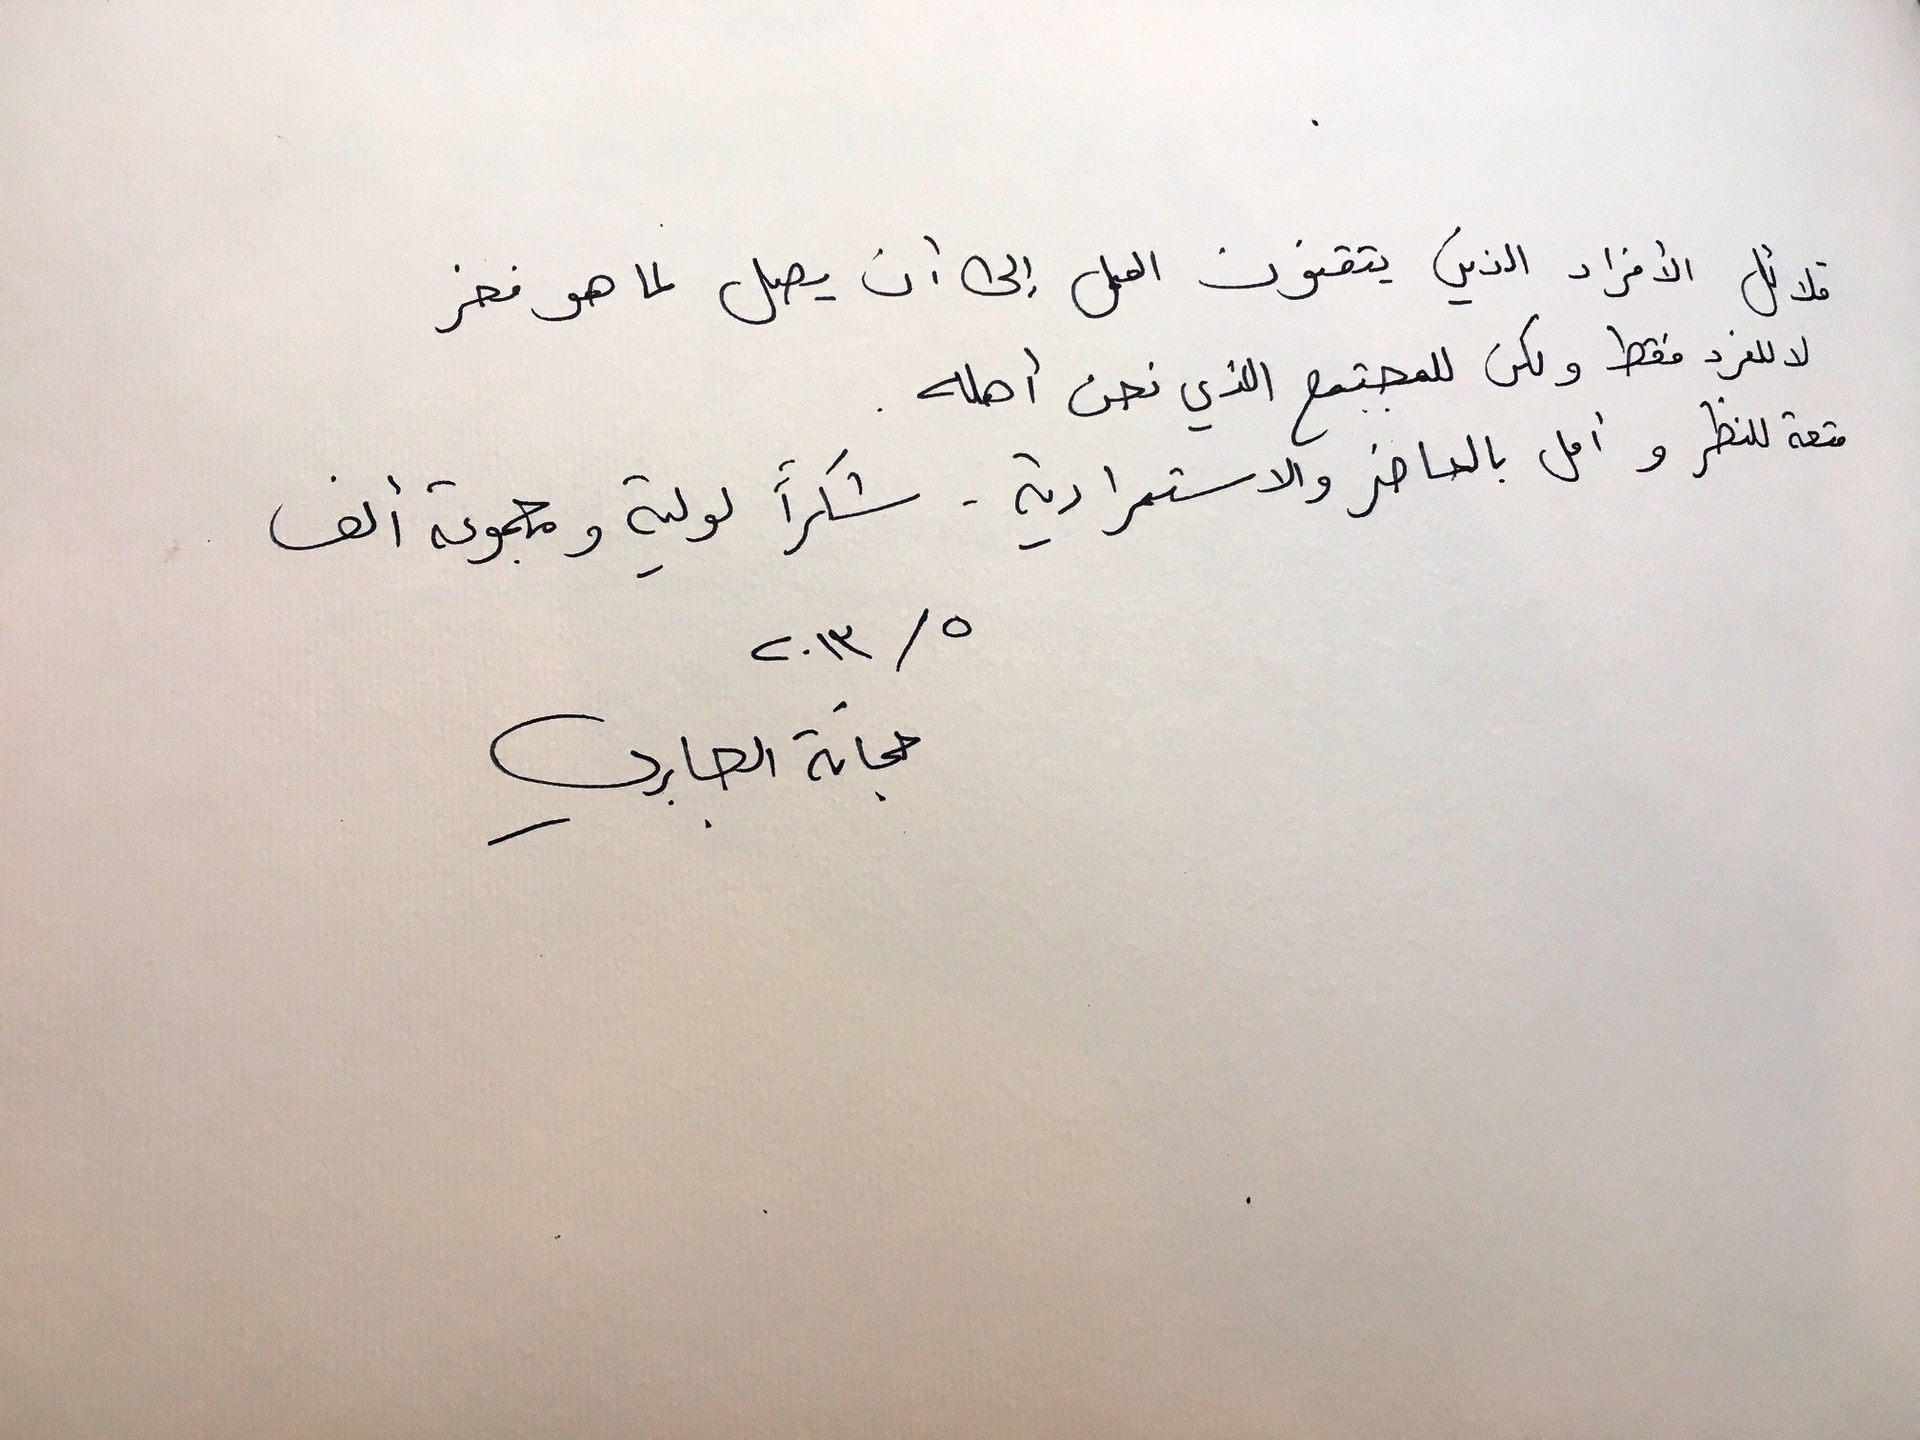 قلائل الأفراد الذين يتقنون العمل إلى أن يصل لما هو فخر
لا للفرد فقط ولكن للمجتمع الذي نحن أهله .
متعة للنظر و أمل بالحاضر والاستمرارية - شكراً لولية و مجموعة ألف
٥ / ٢٠١٣
جمانة الجابري